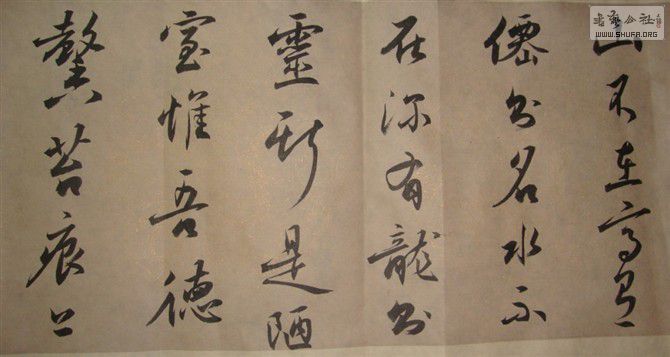 山不在高有
僊則名水不
在深有龍則
靈斯是陋
室惟吾德
馨苔痕上
书艺公社
WWW.SHUFA.ORG